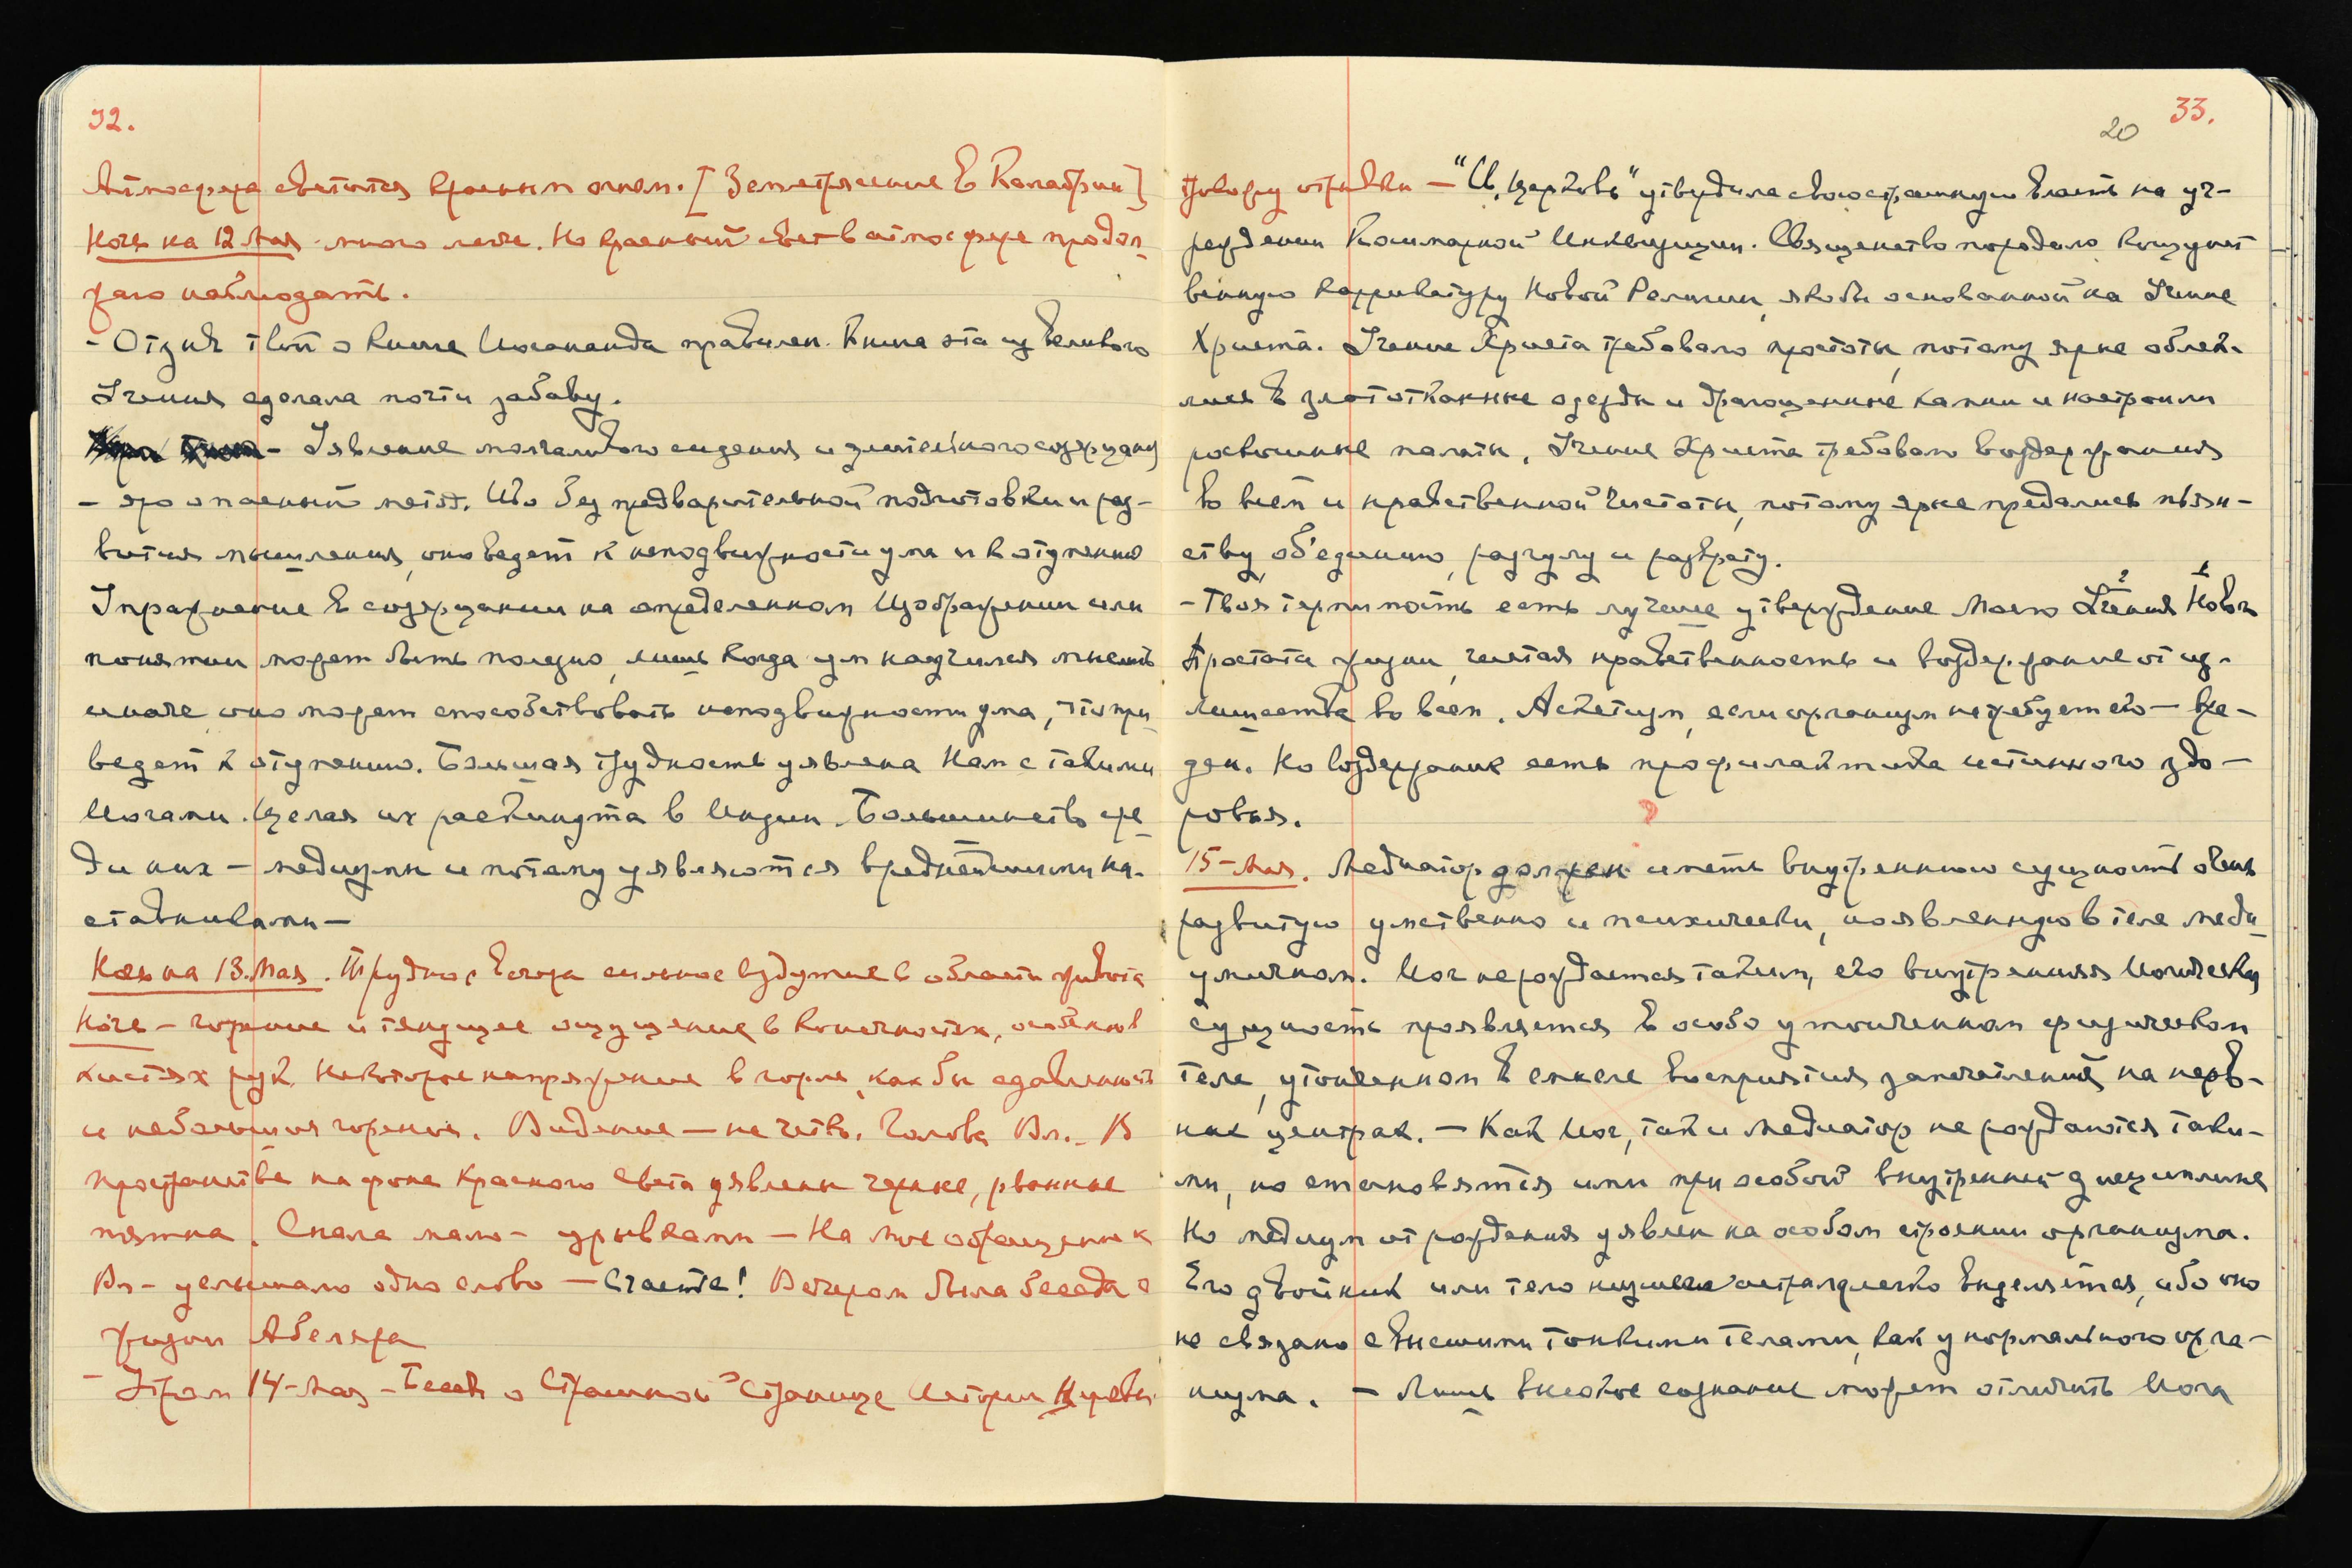 32.
Атмосфера светится красным огнем. [Землетрясение в Калабрии]
Ночь на 12 Мая много легче. Но красный свет в атмосфере продол-
жаю наблюдать.
- Отзыв твой о книге Иогананда правилен. Книга эта из Великого
Учения сделала почти забаву.
- Явление молчаливого сидения и длительного созерцания
- это опасный метод. Ибо без предварительной подготовки и раз-
вития мышления, оно ведет к неподвижности ума и к отупению
Упражнение в созерцании на определенном Изображении или
понятии может быть полезно, лишь когда ум научился мыслить
иначе оно может способствовать неподвижности ума, что при
ведет к отупению. Большая трудность уявлена Нам с такими
Иогами. их раскинута в Индии. Большинство сре-
ди них - медиумы и потому уявляются вреднейшими на-
ставниками -
Ночь на 13. Мая. Трудно с вечера сильное вздутие в области живота
Ночь - горение и тянущее ощущение в конечностях, особенно в
кистях рук. Некоторое напряжение в горле, как бы сдавленность
и небольшое горение. Видение - не четко. Голова Вл. - В
пространстве на фоне красного света уявлены черные, рваные
пятна. Спала мало - урывками - На мое обращение к
Вл - услышала одно слово - Счастье! Вечером была беседа о
жизни Абеляра
- Утром 14 - Мая - Беседа о Страшной Странице Истории Церкви
33.
20
отрывки - "И, Церковь" утвердила свою страшную власть на уч-
реждении Кошмарной Инквизиции. Священство породило кощунст
венную карикатуру Новой Религии, якобы основанной на Учение
Христа. Учение Христа требовало простоты, потому ярые облек-
лись в златотканные одежды и драгоценные камни и настроили
роскошные палаты, Учение Христа требовало воздержания
во всем и нравственной чистоты, потому ярые предались пьян-
ству, об'едению, разгулу и разврату.
- Твоя терпимость есть лучшее утверждение Моего Учения Новы
2 1
Простота жизни, чистая нравственность и воздержание от из-
лишества во всем. Аскетизм, если организм не требует его - вре-
ден. Но воздержание есть профилактика истинного здо-
ровья.
15 - Мая. Медиатор должен иметь внутреннюю сущность очень
развитую умственно и психически, но явленную в теле меди-
умичном. Иог не рождается таким, его внутренняя Иогическая
сущность проявляется в особо утонченном физическом
теле, утонченном в смысле восприятия запечатлений на нерв-
ные центрах. - Как Иог, так и Медиатор не рождаются таки-
ми, но становятся ими при особой внутренней дисциплине
Но медиум от рождения уявлен на особом строении организма.
Его двойник или тело низшего астрала легко выделяется, ибо оно
не связано с высшими тонкими телами, как у нормального орга-
низма. - Лишь высокое сознание может отличить Иога